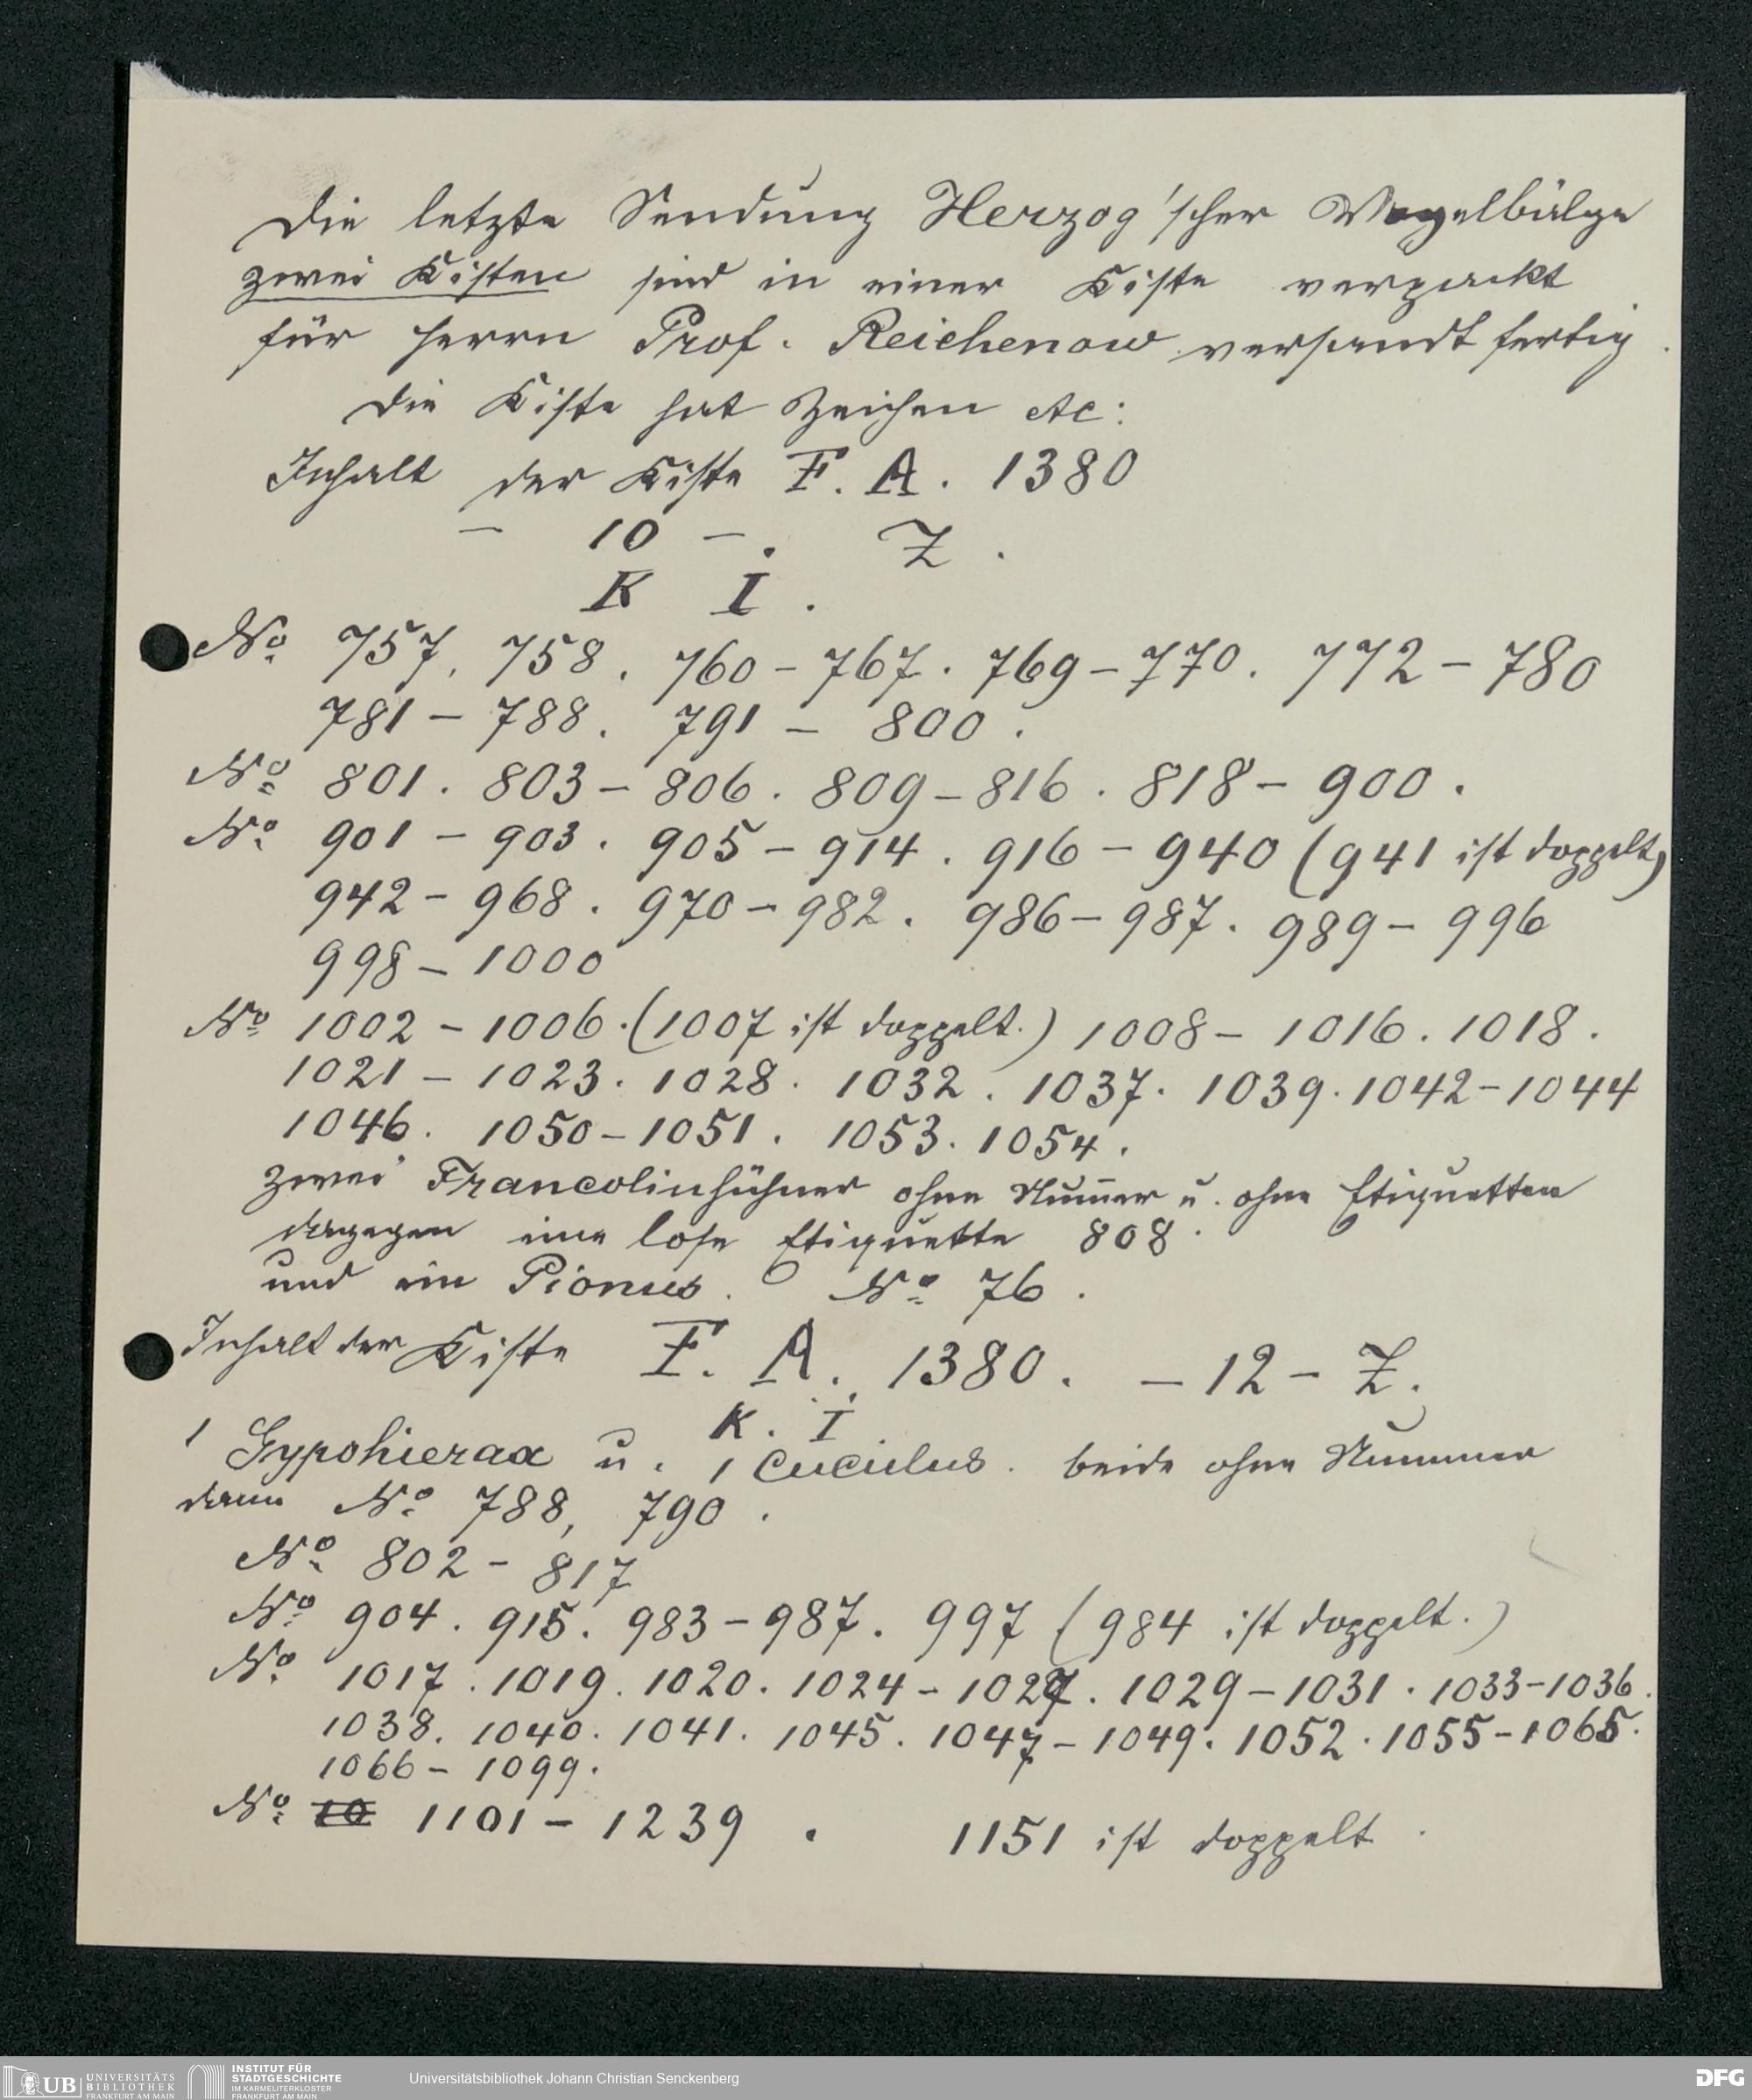 Die letzte Sendung Herzog'scher Vogelbälge
zwei Kisten sind in einer Kiste verpackt
für Herrn Prof. Reichenow versandt fertig.
Die Kiste hat Zeichen etc:
Inhalt der Kiste F. A. 1380
– 10 –. Z.
K I.
No 757, 758. 760 – 767. 769 – 770. 772 – 780
781 – 788. 791 – 800.
No 801. 803 – 806. 809 – 816. 818 – 900.
No 901 – 903. 905 – 914. 916 – 940 (941 ist doppelt)
942 – 968. 970 – 982. 986 – 987. 989 – 996
998 – 1000
No 1002 – 1006. (1007 ist doppelt.) 1008 – 1016. 1018.
1021 – 1023. 1028. 1032. 1037. 1039. 1042 – 1044
1046. 1050 – 1051. 1053. 1054.
zwei Francolinhühner ohne Num̄er u. ohne Etiquetten
dagegen eine lose Etiquette 808.
und ein Pionus. No 76.
Inhalt der Kiste F. A. 1380. – 12 – Z.
K. I
1 Gypohierax u. 1 Cuculus. beide ohne Nummer
dann No 788, 790.
No 802 – 817
No 904. 915. 983 – 987. 997 (984 ist doppelt.)
No 1017. 1019. 1020. 1024 – 1027. 1029 – 1031. 1033 – 1036.
1038. 1040. 1041. 1045. 1047 – 1049. 1052. 1055 – 1065.
1066 – 1099.
No 10 1101 – 1239. 1151 ist doppelt.
UB UNIVERSITÄTS BIBLIOTHEK FRANKFURT AM MAIN
INSTITUT FÜR STADTGESCHICHTE IM KARMELITERKLOSTER FRANKFURT AM MAIN
Universitätsbibliothek Johann Christian Senckenberg
DFG